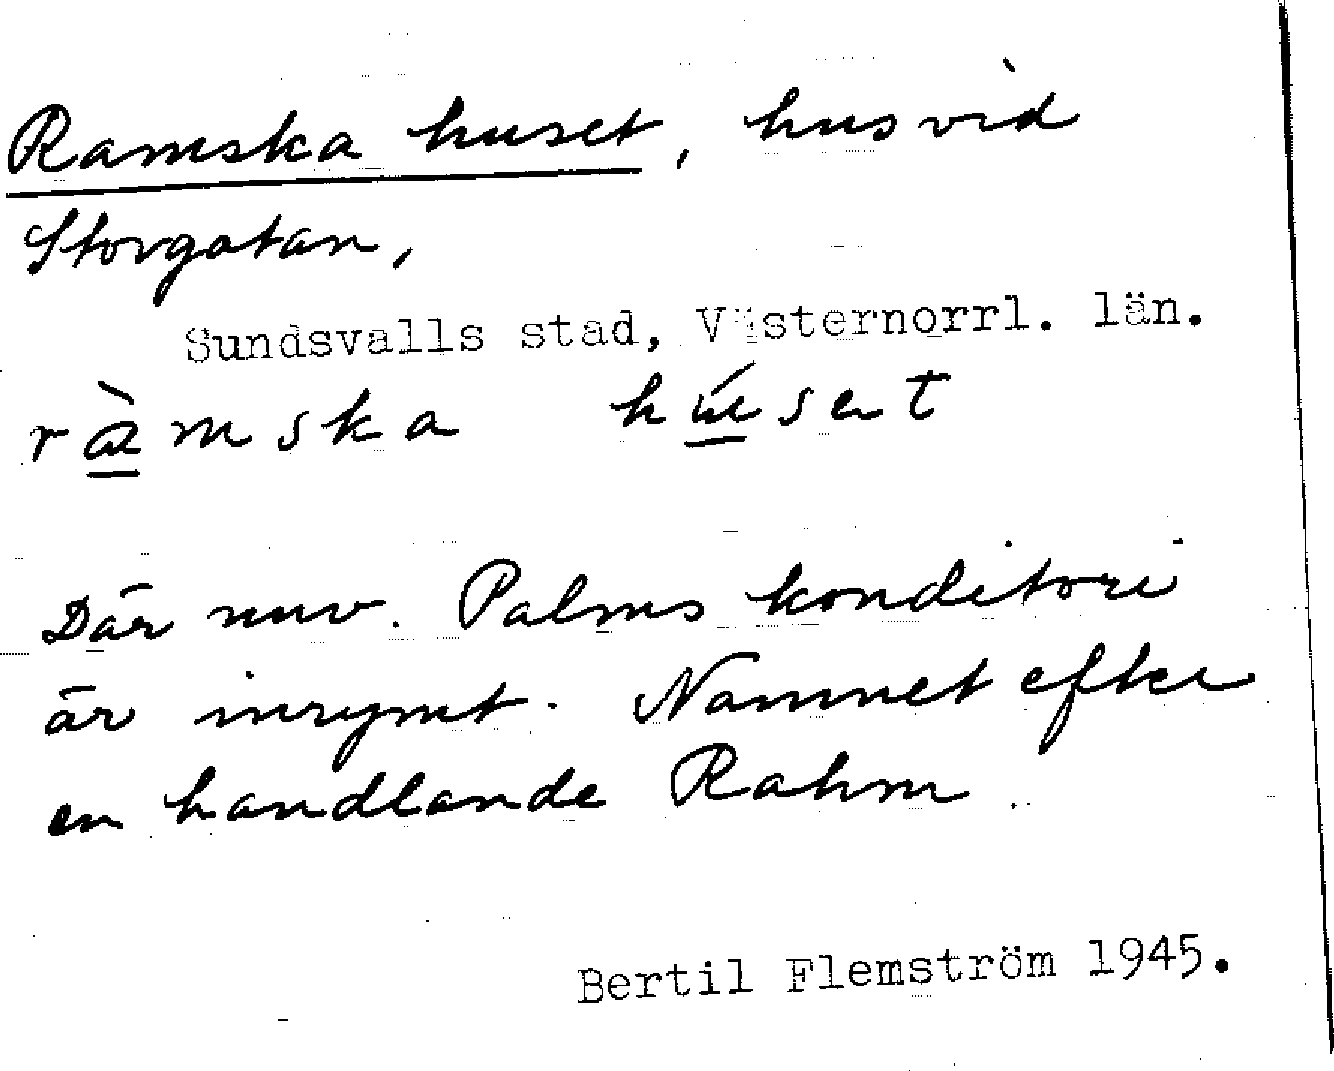 Ramska huset, hus vid
Storgatan,
Sundsvalls stad, Västernorrl. län.
rà̱mska hú̱set
Där nuv. Palms konditori
är inrymt. Namnet efter
en handlande Rahm.
Bertil Flemström 1945.